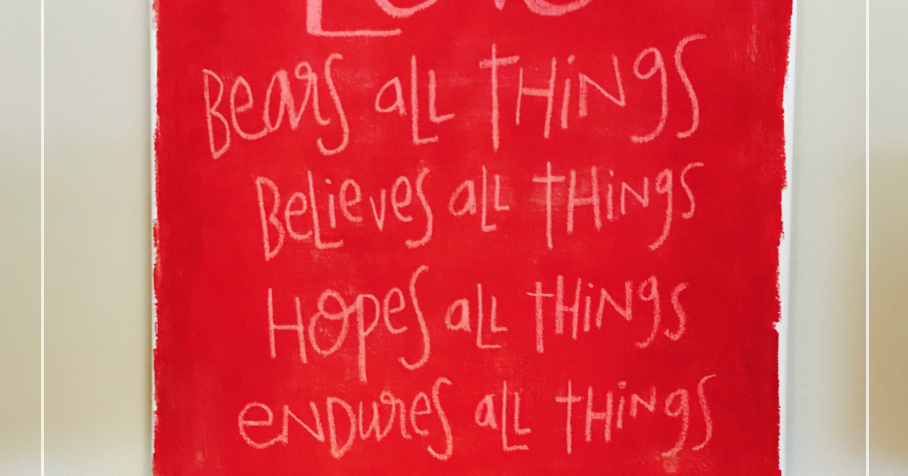 Love
Bears all THiNgs
Believes all THiNgs
Hopes all THiNgs
eNDures all THiNgs